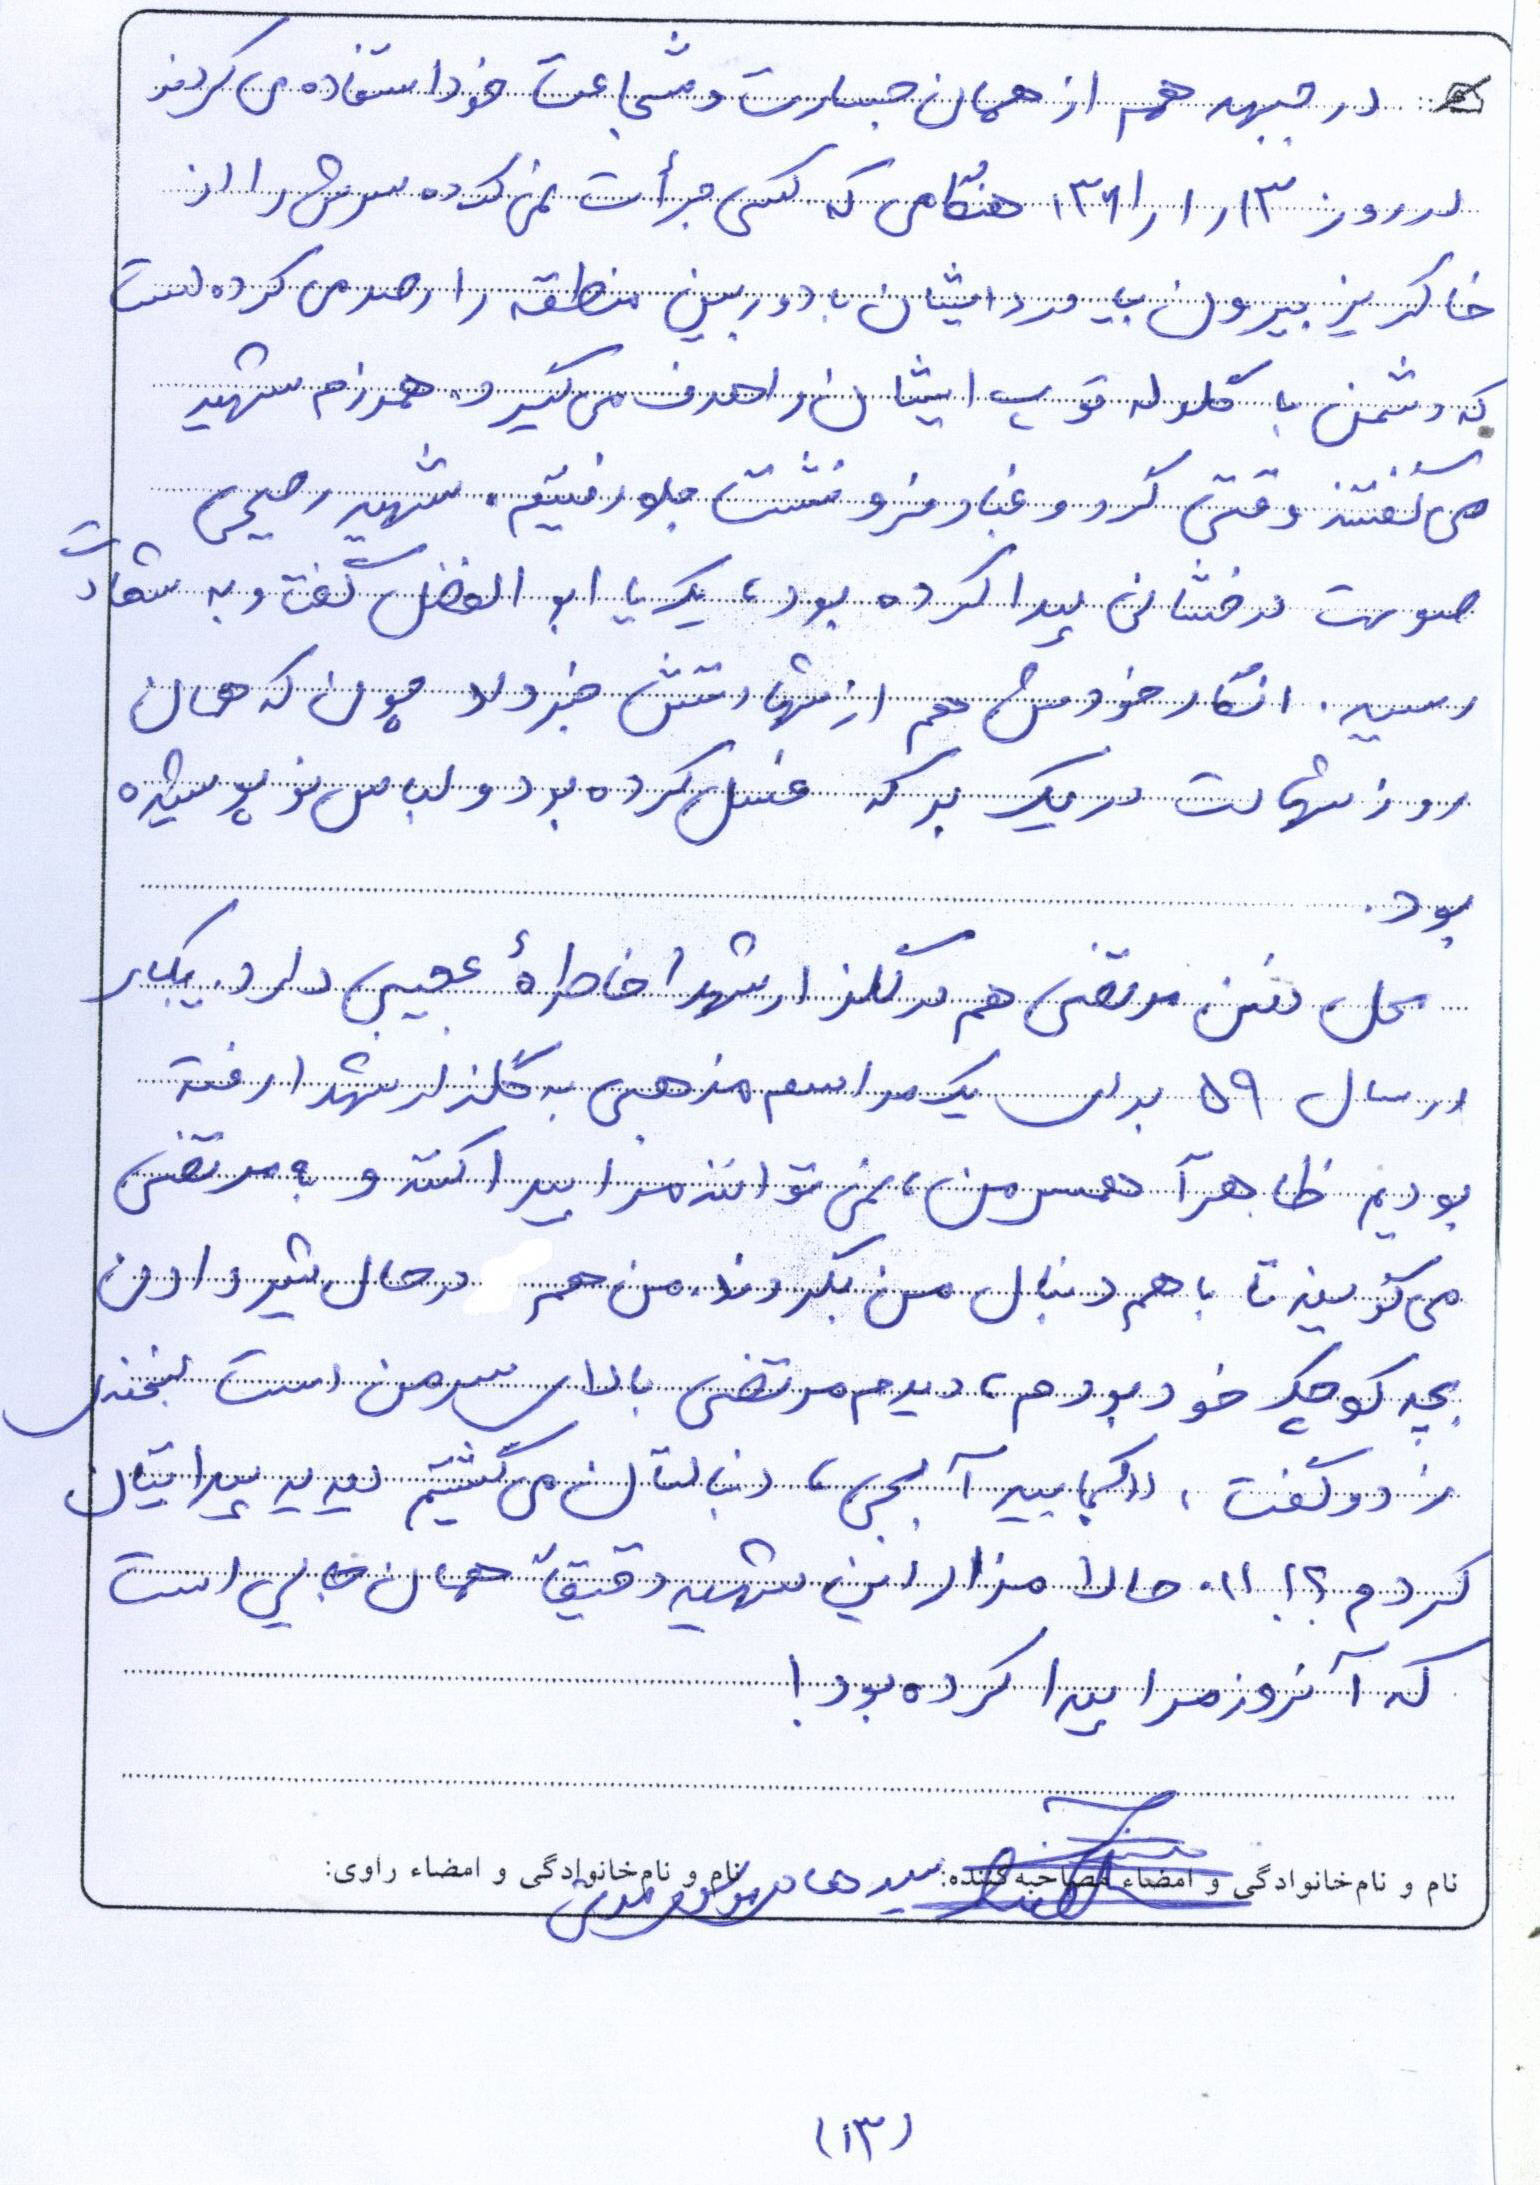 در جبهه هم از همان جسارت و شجاعت خود استفاده می کردند
در روز ۱۳ ر ۱ ر ۱۳۶۱ هنگامی که کسی جرأت نمی کرده سرش را از
خاکریز بیرون بیاورد ایشان با دوربین منطقه را رصد می کرده است
که دشمن با گلوله توپ ایشان را هدف می گیرد. همرزم شهید
می گفتند وقتی گرد و غبار فرو نشست جلو رفتیم. شهید رحیمی
صورت درخشانی پیدا کرده بود، یک یا ابوالفضل گفت و به شهادت
رسید. انگار خودش هم از شهادتش خبر داد چون که همان
روز شهادت در یک برکه غسل کرده بود و لباس نو پوشیده
بود.
محل دفن مرتضی هم در گلزار شهدا خاطرهٔ عجیبی دارد. یکبار
در سال ۵۹ برای یک مراسم مذهبی به گلزار شهدا رفته
بودیم ظاهرآ همسر من، نمی توانند مرا پیدا کنند و به مرتضی
می گویند تا با هم دنبال من بگردند. من هم در حال شیر دادن
بچه کوچک خود بودم، دیدم مرتضی بالای سر من است لبخندی
زد و گفت، «کجایید آبجی، دنبالتان می گشتیم دیدید پیدایتان
کردم؟!». حالا مزار این شهید دقیقاً همان جایی است
که آنروز مرا پیدا کرده بود!
نام و نام‌خانوادگی و امضاء مصاحبه‌کننده: نام و نام‌خانوادگی و امضاء راوی:
(۱۳)